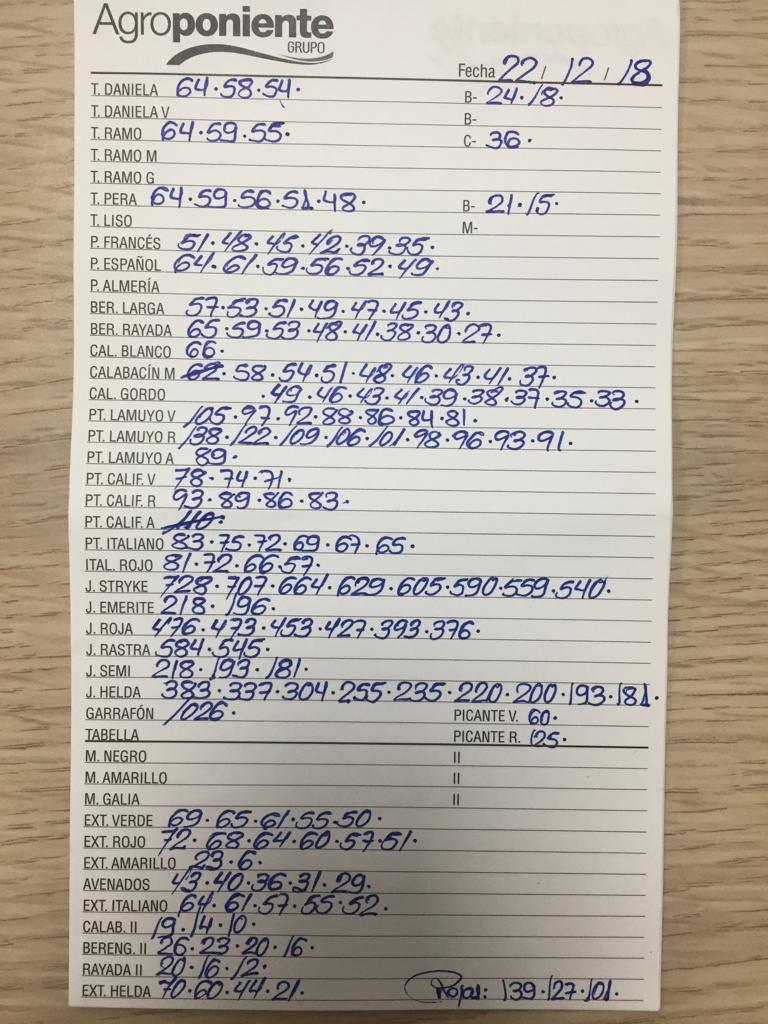 Agroponiente
GRUPO
Fecha 22 / 12 / 18
T. DANIELA 64·58·54· B- 24·18·
T. DANIELA V B-
T. RAMO 64·59·55· C- 36·
T. RAMO M
T. RAMO G
T. PERA 64·59·56·51·48· B- 21·15·
T. LISO M-
P. FRANCÉS 51·48·45·42·39·35·
P. ESPAÑOL 64·61·59·56·52·49·
P. ALMERÍA
BER. LARGA 57·53·51·49·47·45·43·
BER. RAYADA 65·59·53·48·41·38·30·27·
CAL. BLANCO 66·
CALABACÍN M 62·58·54·51·48·46·43·41·37·
CAL. GORDO ·49·46·43·41·39·38·37·35·33·
PT. LAMUYO V 105·97·92·88·86·84·81·
PT. LAMUYO R 138·122·109·106·101·98·96·93·91·
PT. LAMUYO A 89·
PT. CALIF. V 78·74·71·
PT. CALIF. R 93·89·86·83·
PT. CALIF. A 110·
PT. ITALIANO 83·75·72·69·67·65·
ITAL. ROJO 81·72·66·57·
J. STRYKE 728·707·664·629·605·590·559·540·
J. EMERITE 218·196·
J. ROJA 476·473·453·427·393·376·
J. RASTRA 584·545·
J. SEMI 218·193·181·
J. HELDA 383·337·304·255·235·220·200·193·181·
GARRAFÓN 1026· PICANTE V. 60·
TABELLA PICANTE R. 125·
M. NEGRO II
M. AMARILLO II
M. GALIA II
EXT. VERDE 69·65·61·55·50·
EXT. ROJO 72·68·64·60·57·51·
EXT. AMARILLO 23·6·
AVENADOS 43·40·36·31·29·
EXT. ITALIANO 64·61·57·55·52·
CALAB. II 19·14·10·
BERENG. II 26·23·20·16·
RAYADA II 20·16·12·
EXT. HELDA 70·60·44·21· Rojas: 139·127·101·